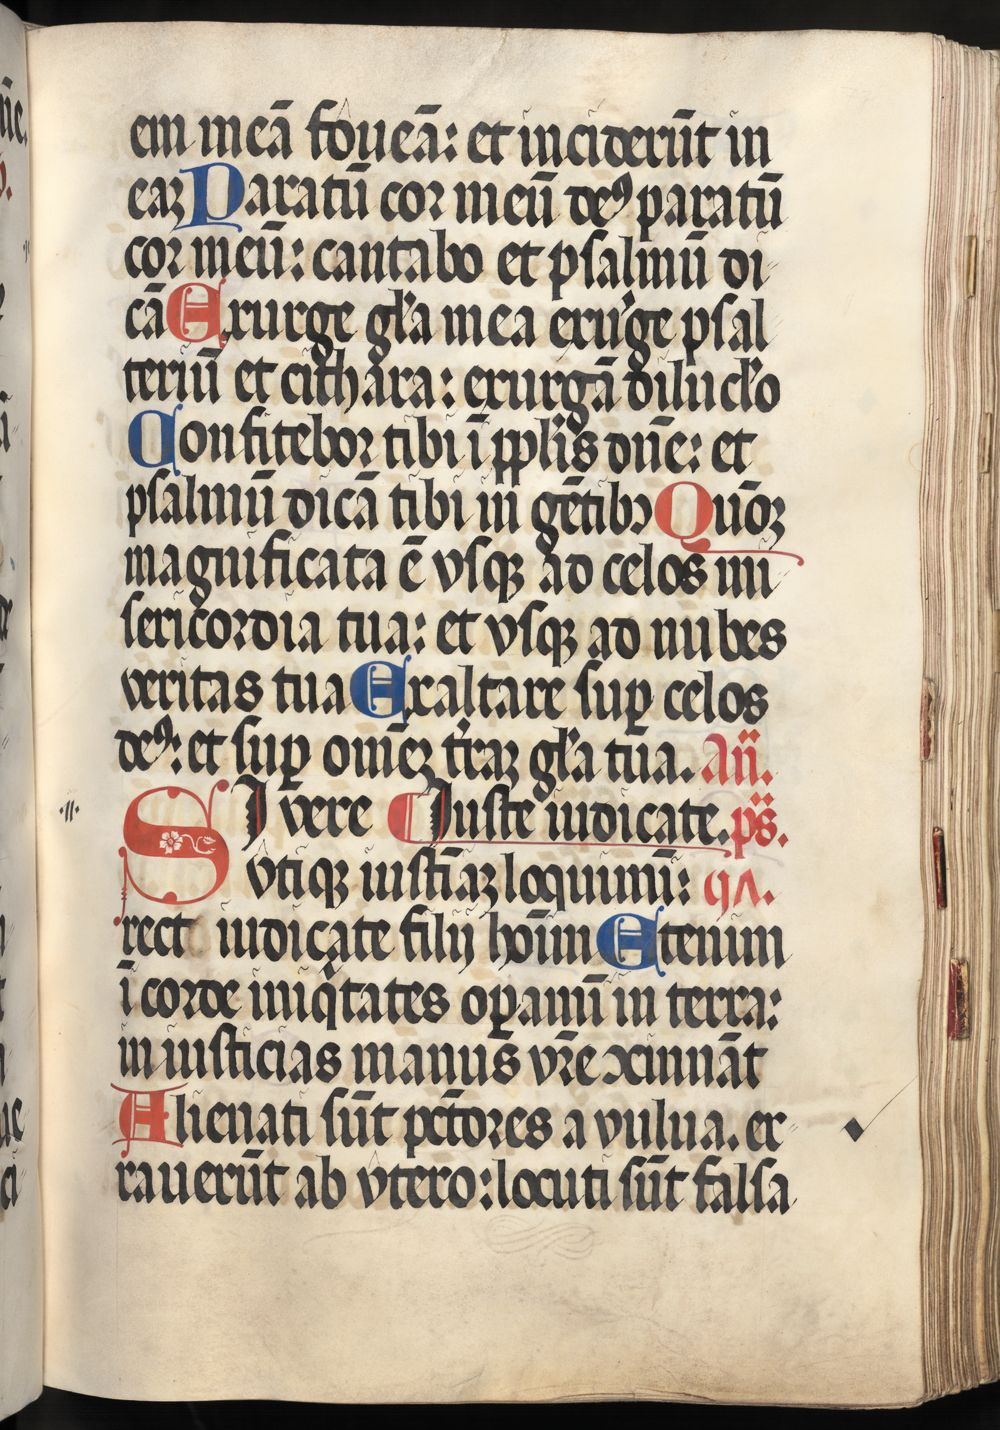 em meā foueā: et inciderūt in
eaꝫ Paratū cor meū deꝰ paratū
cor meū: cantabo et psalmū di
cā Exurge gl'a mea exur'ge psal
teriū et cithara: exurgā dilucl'o
Confitebor tibi ī ppl'is dn̄e: et
psalmū dicā tibi in gētibꝫ Quō̄ꝫ
magnificata ē vsqꝫ ad celos mi
sericordia tua: et vsqꝫ ad nubes
veritas tua Exaltare suꝑ celos
deꝰ: et suꝑ omēꝫ t'raꝫ gl'a tua. An̄.
·II· SI vere Juste iudicate. ps̄.
vtiqꝫ iustīaꝫ loquimī:
rect iudicate filij hoīm Etenim
ī corde iniq'tates oꝑamī in terra:
in iusticias manus vr̄e ↄcinnāt
Alienati sūt pctōres a vulua. er
rauerūt ab vtero: locuti sūt falsa